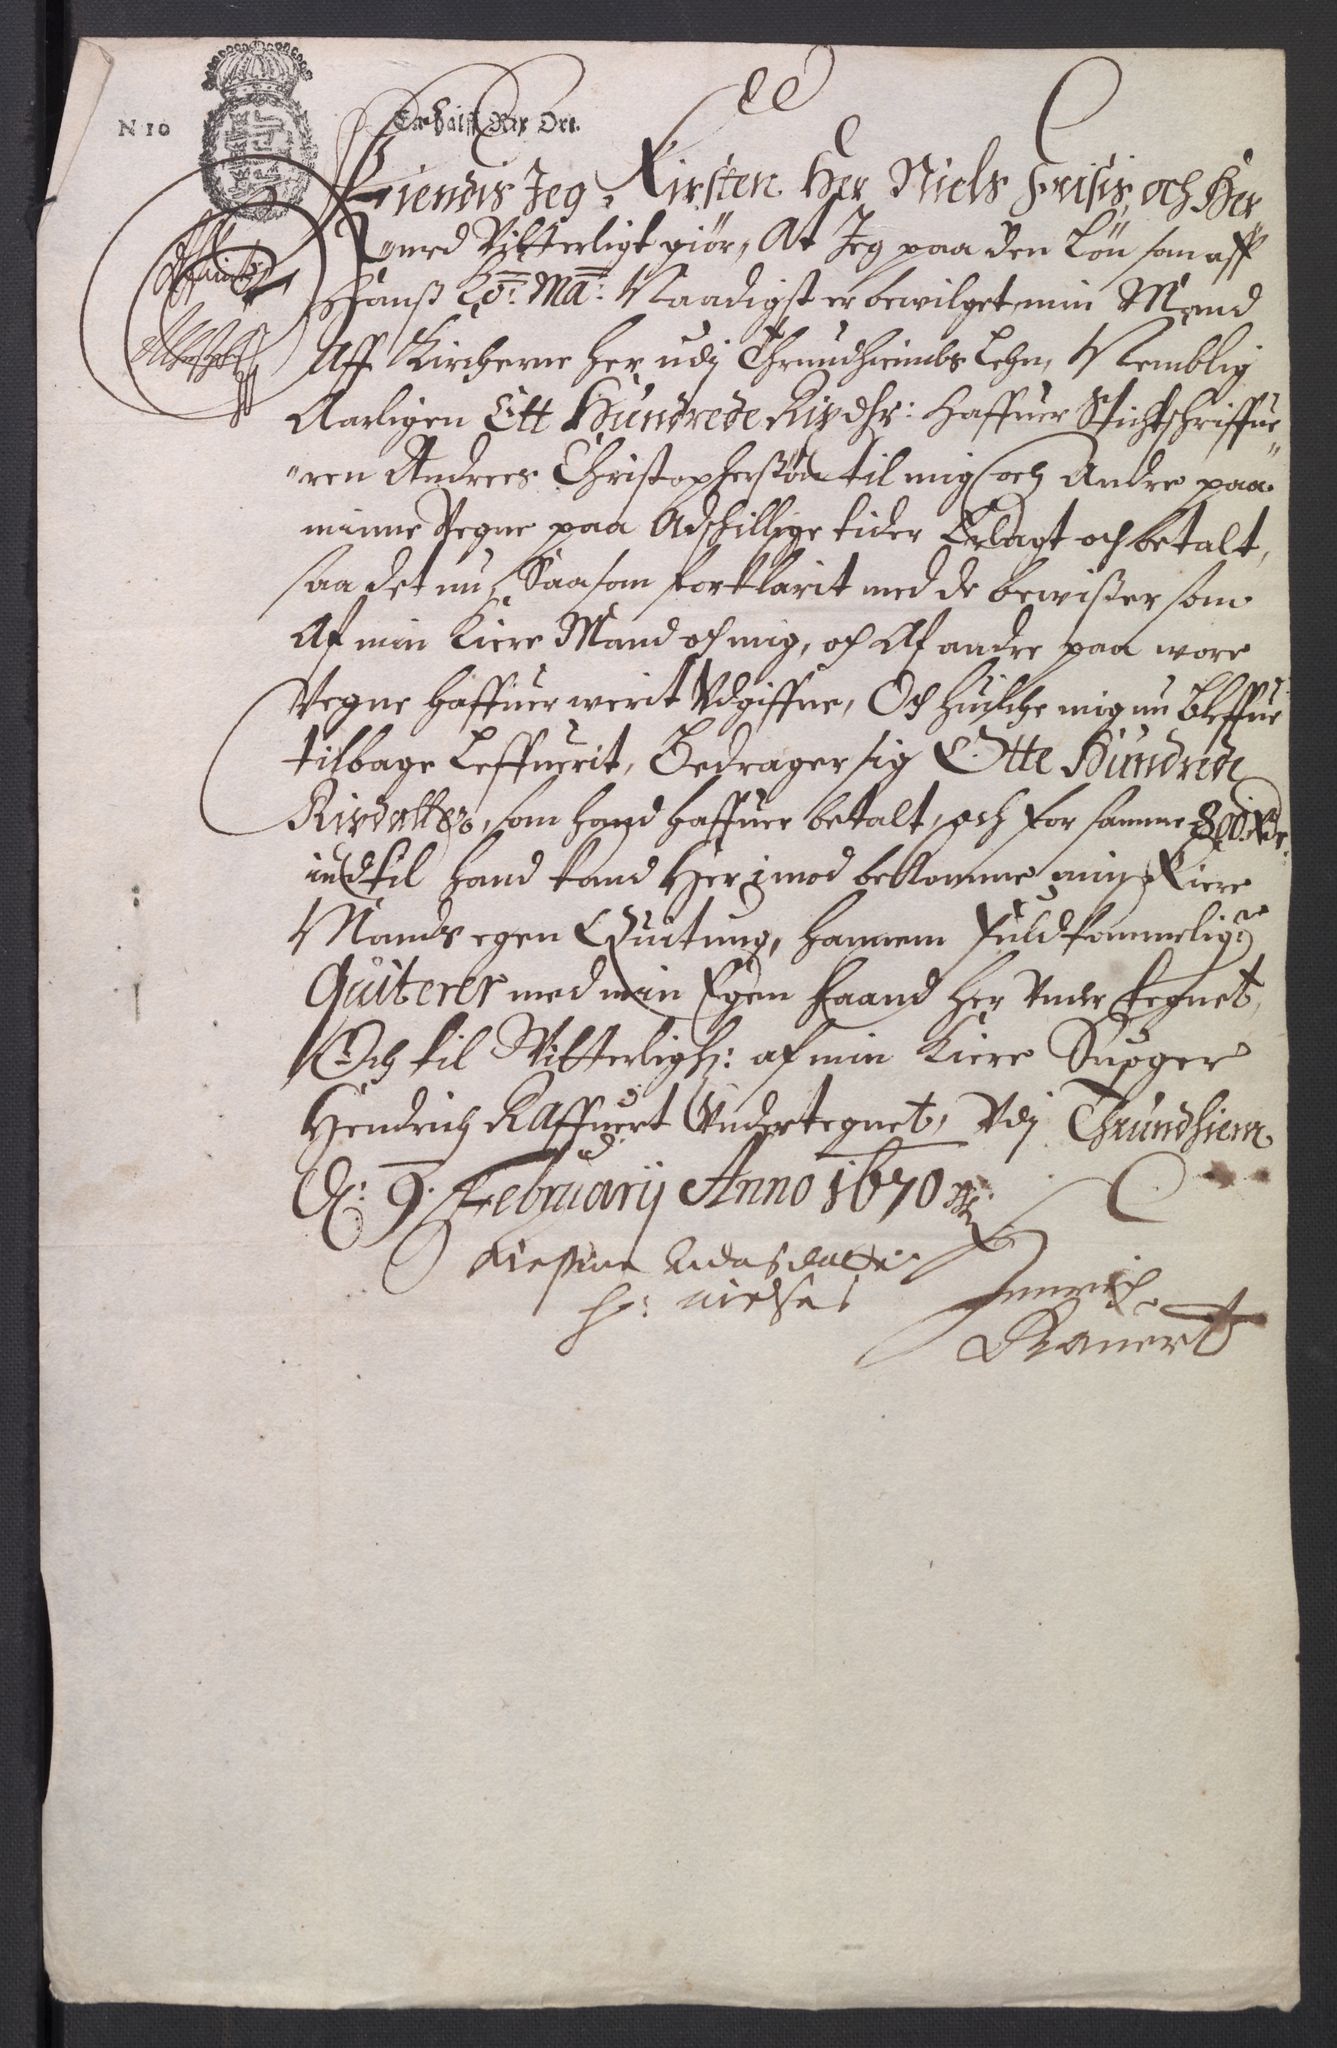 N 10
En half Rix Ort.
Kiendis Jeg, Kirsten Her Niels Friisis, och Her
med Vitterligt giör, At Jeg paa den Lön som aff
Hanß Ko: Ma: Naadigst er bewilget min Mand
Aff Kircherne her udj Thrundhiembs Lehn, Nemblig
Aarligen Ett Hundrede Rixdlr: Haffuer Stichtschriffue
ren Andrees Christopherßön til mig och Andre paa
minne Vegne paa Adschillige tider Erlagt och betalt,
saa det nu, Saasom forklarit med de bewißer som
Af min Kiere Mand och mig, och Af andre paa wore
Vegne haffuer werit Udgiffne, Och huilche mig nu bleffue
tilbage Leffuerit, Bedrager sig Otte Hundrede
Rixdaller, som hand haffuer betalt, och for samme 800 Rdr.
indtil hand kand Her imod bekomme min Kiere
Mands egen Quitung, hannem fuldkommelig
Quiterer med min Egen haand her under tegnet,
Och til Vitterligh: af min Kiere Suoger
Hendrich Raffuert Undertegnet, Udj Thrundhiem
D: 9. Februarij Anno 1670
Kirstine Adasdatter
hr: Nielses
Henrich
Rauert